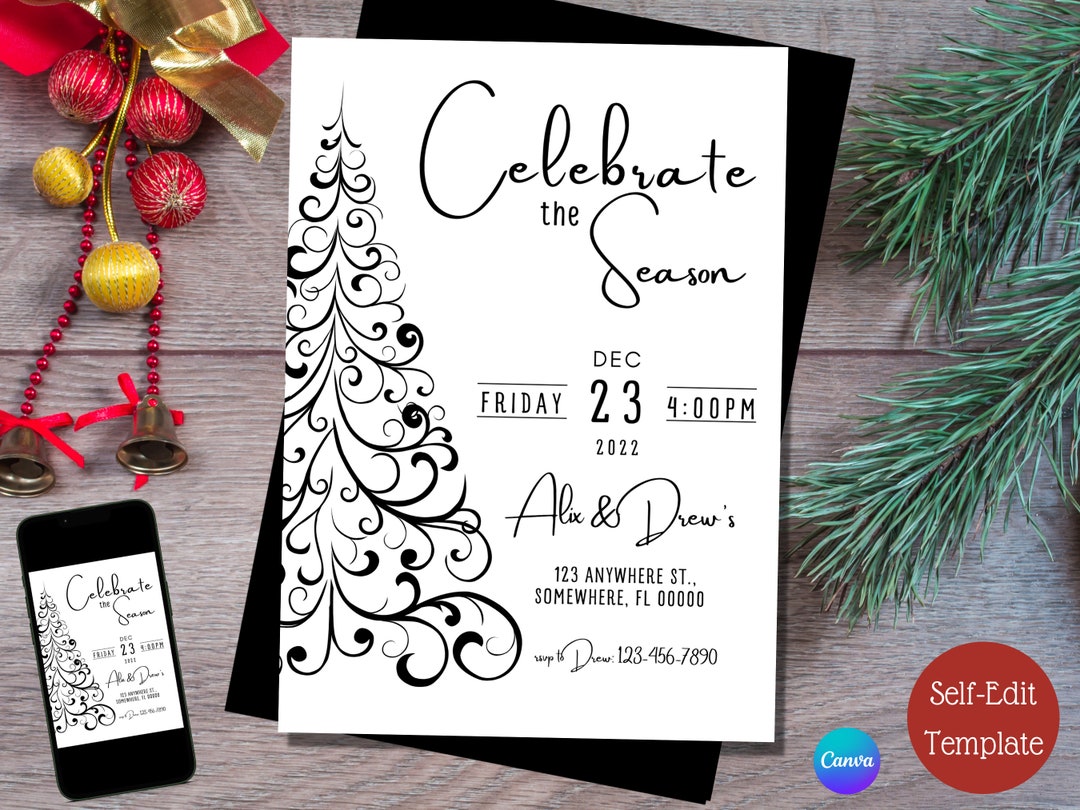 Celebrate
the
Season
DEC
FRIDAY 23 4:00PM
2022
Alix & Drew's
123 ANYWHERE ST.,
SOMEWHERE, FL 00000
rsvp to Drew: 123-456-7890
Celebrate
the
Season
DEC
FRIDAY 23 4:00PM
2022
Alix & Drew's
123 ANYWHERE ST.,
SOMEWHERE, FL 00000
rsvp to Drew: 123-456-7890
Canva
Self-Edit
Template